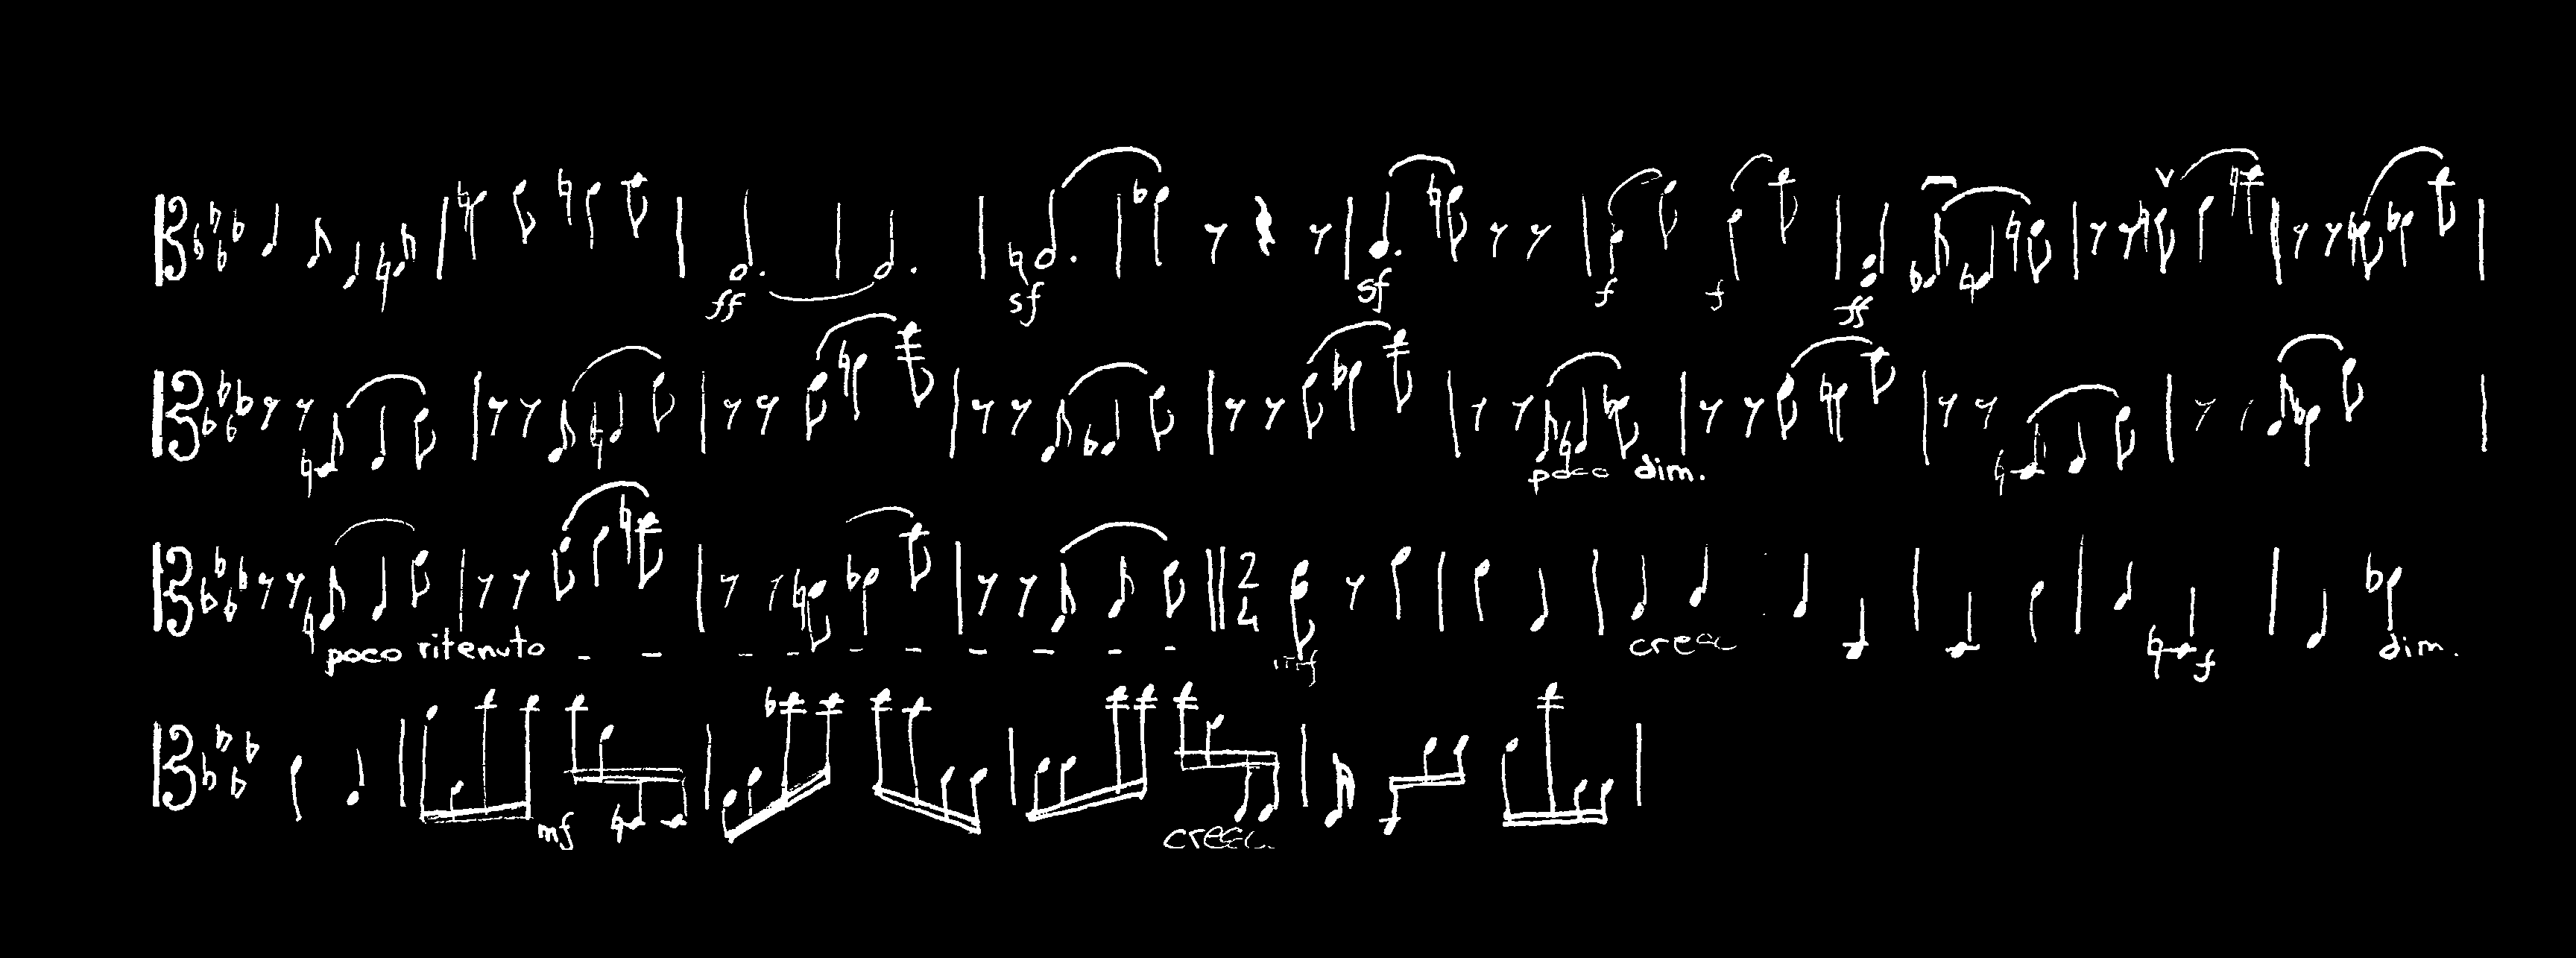 ff sf sf f f ff
poco dim.
poco ritenuto 2 4 mf cresc f dim.
mf cresc.